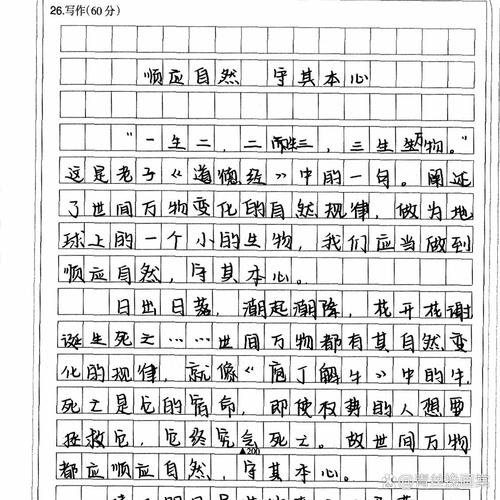 26.写作(60分)
顺应自然 守其本心
"一生二,二而生三,三生万物。"
这是老子《道德经》中的一句。阐述
了世间万物变化的自然规律,做为地
球上的一个小的生物,我们应当做到
顺应自然,守其本心。
日出日落,潮起潮降,花开花谢
诞生死亡……世间万物都有其自然变
化的规律,就像《庖丁解牛》中的牛
死亡是它的宿命,即使权贵的人想要
拯救它,它终究会死亡。故世间万物
▲200
都应顺应自然,守其本心。